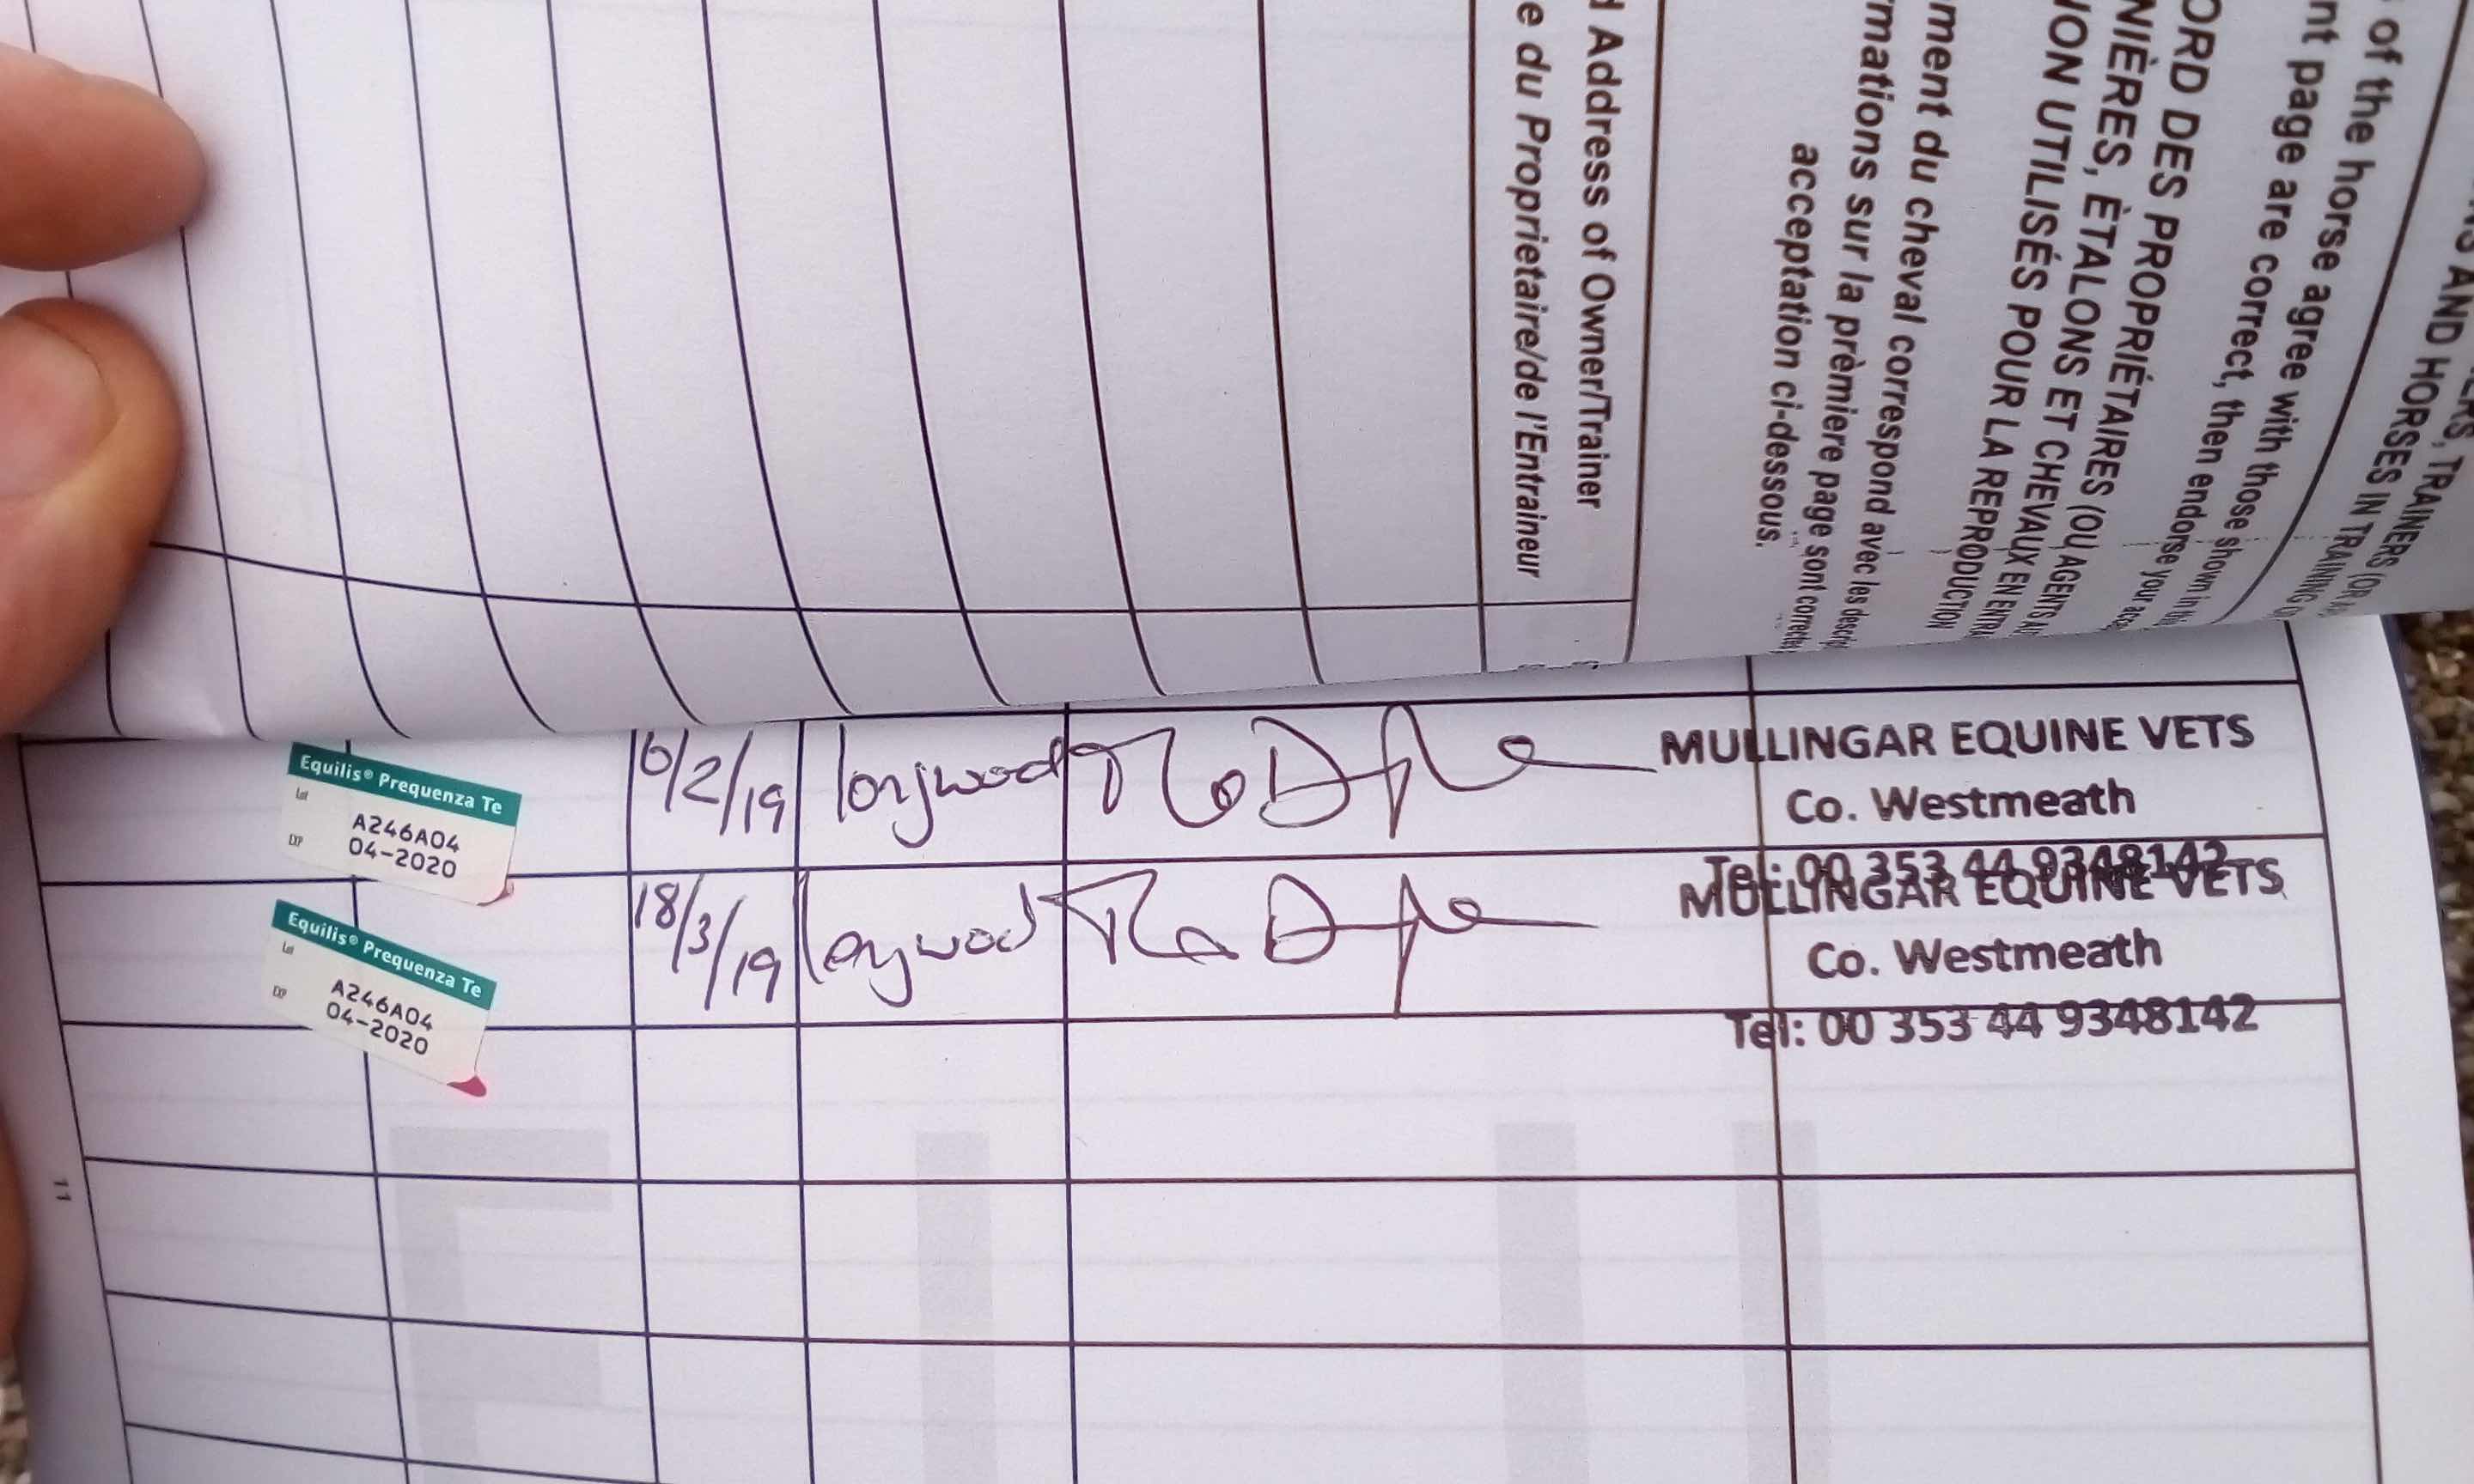 NS AND HORSES IN TRAINING
ERS, TRAINERS (OR A
of the horse agree with those shown in th
nt page are correct, then endorse your acc
ORD DES PROPRIÉTAIRES (OU AGENTS A
NIÈRES, ÈTALONS ET CHEVAUX EN ENTRA
ION UTILISÉS POUR LA REPRODUCTION
ment du cheval correspond avec les descrip
rmations sur la prèmiere page sont correctes
acceptation ci-dessous.
d Address of Owner/Trainer
e du Proprietaire/de l'Entraineur
Equilis® Prequenza Te
Lot A246A04
EXP 04-2020
6/2/19 longwood
MULLINGAR EQUINE VETS
Co. Westmeath
Tel: 00 353 44 9348142
Equilis® Prequenza Te
Lot A246A04
EXP 04-2020
18/3/19 longwood
MULLINGAR EQUINE VETS
Co. Westmeath
Tel: 00 353 44 9348142
11